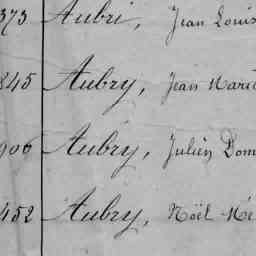 373 Aubri, Jean Louis
845 Aubry, Jean Marie
906 Aubry, Julien Dom
452 Aubry, Noël Me